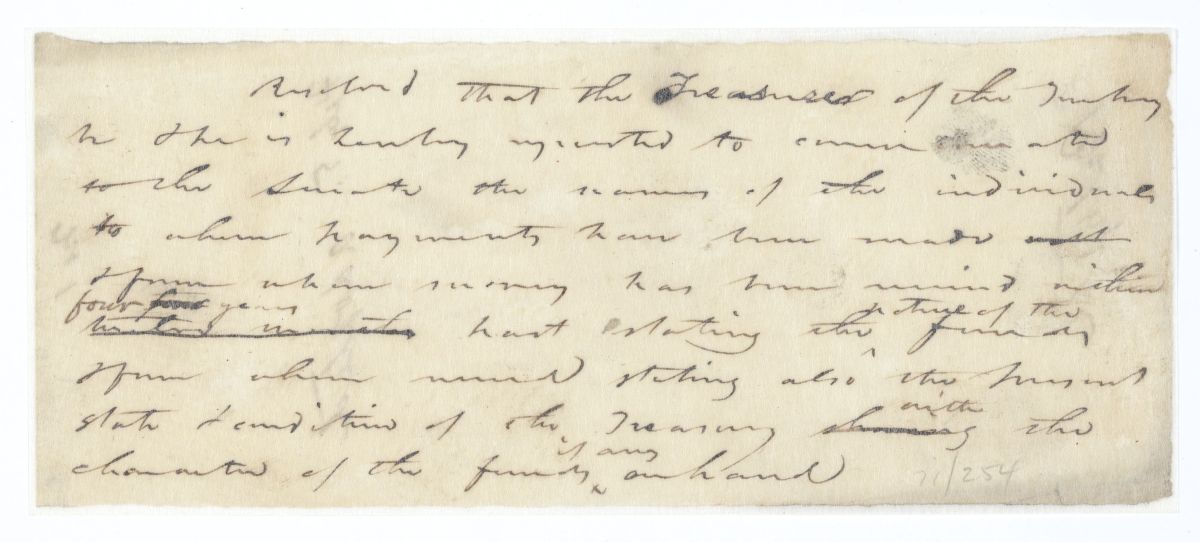 Resolved that the Treasurer of the Treasury
be & he is hereby requested to communicate
to the Senate the names of the individuals
to whom payments have been made
& from whom money has been received within
four years
past stating the nature of the funds
& from whom received stating also the present
state & condition of the Treasury with the
character of the funds if any on hand
71/254